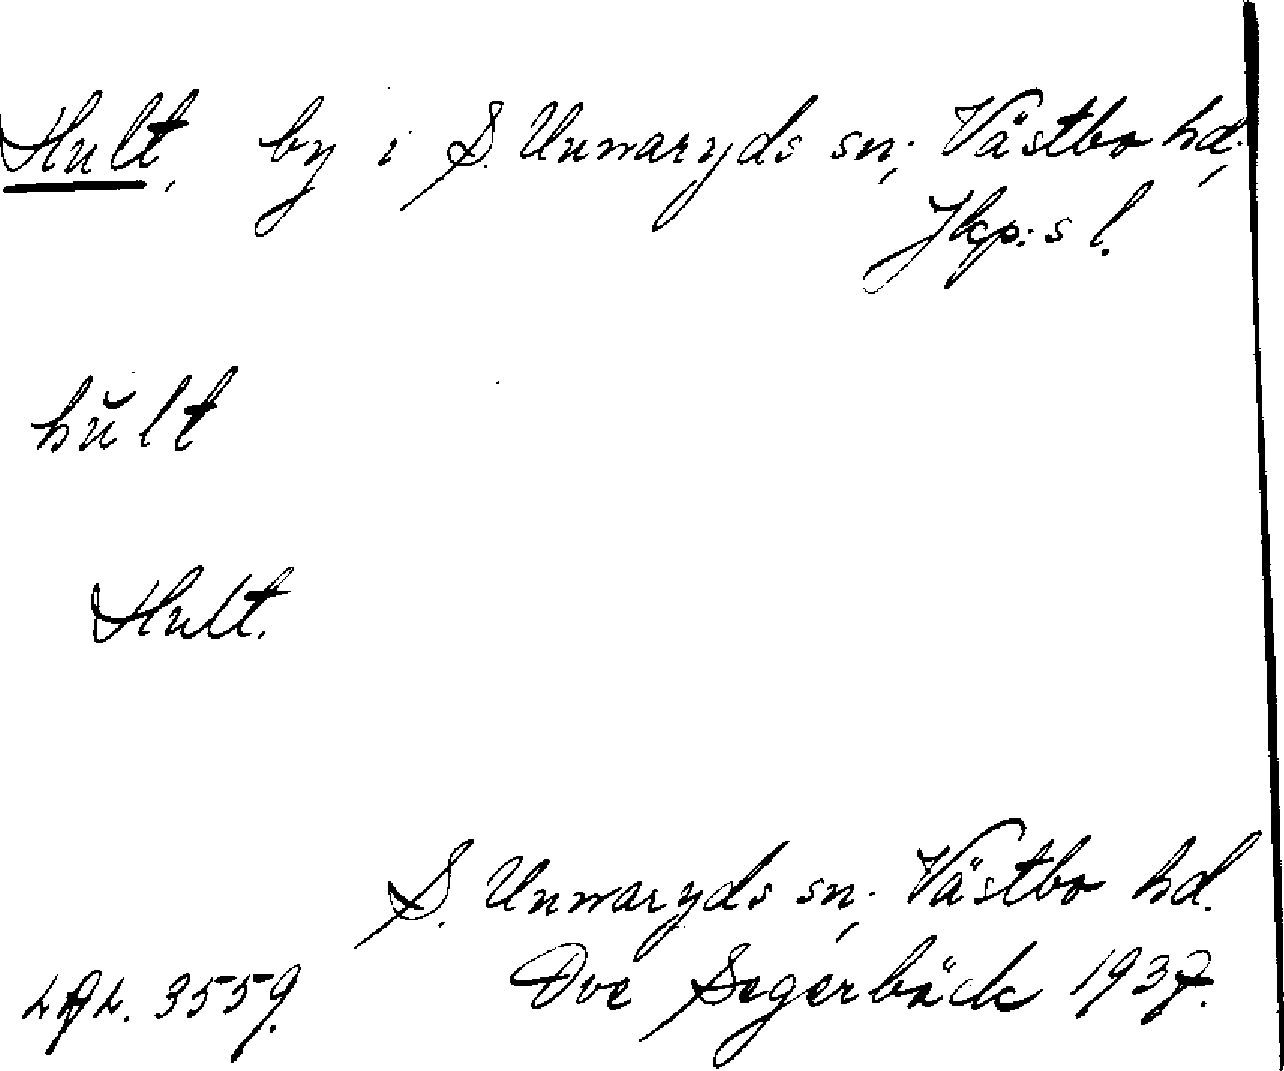 Hult, by i S. Unnaryds sn; Västbo hd;
Jkp:s l.
hŭlt
Hult.
S. Unnaryds sn; Västbo hd.
3559. Ove Segerbäck 1937.